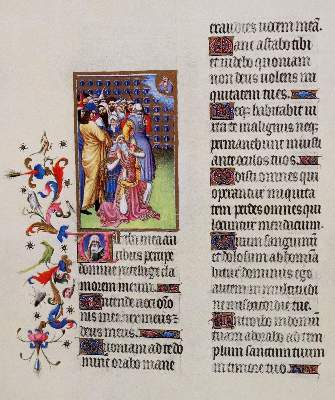 Verba mea au
ribus percipe
domine intellige cla
morem meum.
Intende voci oracio
nis mee rex meus et
deus meus.
Quoniam ad te do
mine orabo mane
exaudies vocem meã.
Mane astabo tibi
et videbo quoniam
non deus volens ini
quitatem tu es.
Neqȝ habitabit iu
xta te malignus neqȝ
permanebunt iniusti
ante oculos tuos.
Odisti omnes qui
operantur iniquita
tem perdes omnes qui
loquuntur mendacium.
Virum sanguinum
et dolosum abhomi
nabitur dominus ego
autem in multitudi
ne misericordie tue.
Introibo in domũ
tuam adorabo ad tem
plum sanctum tuum
in timore tuo.